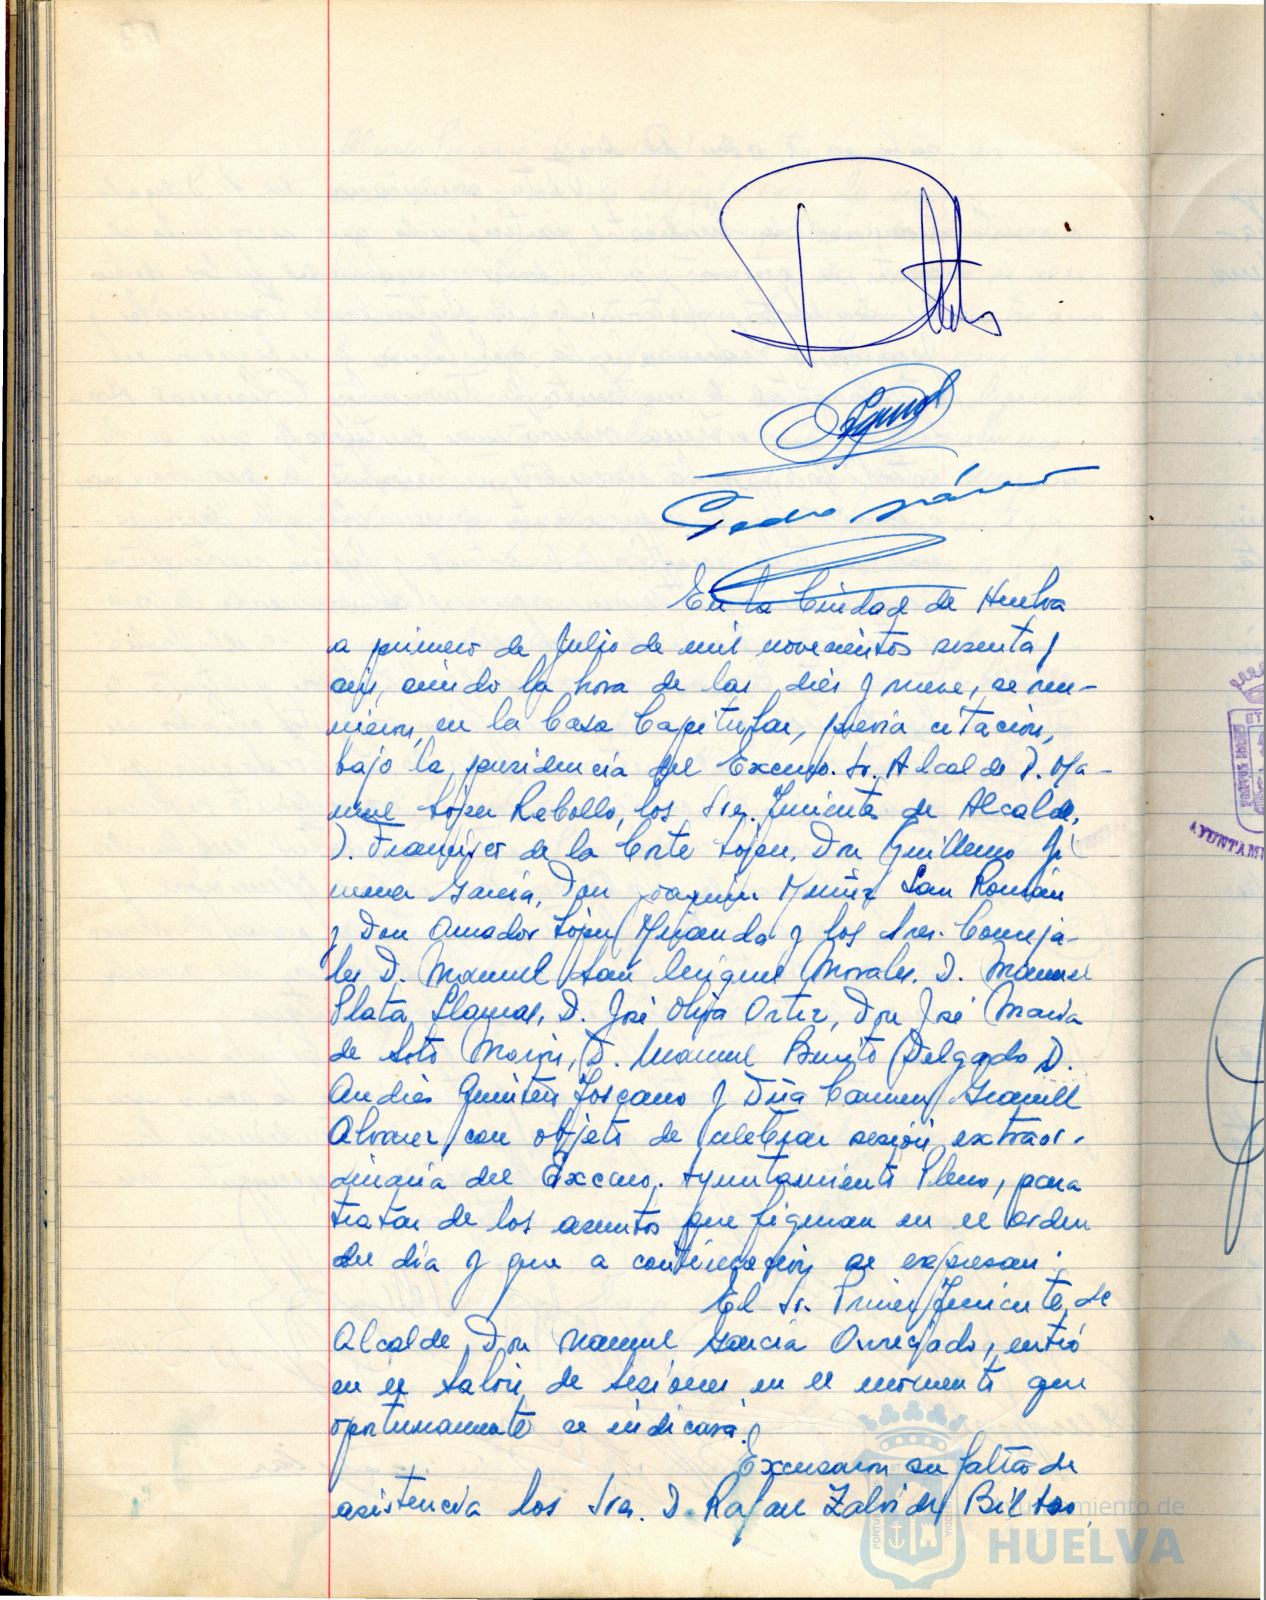 Pedro
En la Ciudad de Huelva
a primero de Julio de mil novecientos sesenta y
seis, siendo la hora de las dies y nueve, se reu-
nieron, en la Casa Capitular, previa citación,
bajo la presidencia del Excmo. Sr. Alcalde D. Ma-
nuel López Rebollo, los Sres. Tenientes de Alcalde,
D. Francisco de la Corte López, Don Guillermo Ji
menez García, Don Joaquin Muñiz San Román
y Don Amador López Miranda y los Sres. Conceja-
les D. Manuel San Miguel Morales, D. Manuel
Plata Llamas, D. José Oliva Ortiz, Don José Maria
de Soto Morón, D. Manuel Benito Delgado D.
Andrés Quintero Toscano y Dña Carmen
Alvarez con objeto de celebrar sesión extraor-
dinaria del Excmo. Ayuntamiento Pleno, para
tratar de los asuntos que figuran en el orden
del día y que a continuación se expresan.
El Sr. Primer Teniente de
Alcalde, Don Manuel García Orregado, entró
en el Salón de Sesiones en el momento que
oportunamente se indicará.
Excusaron su falta de
asistencia los Sres. D. Rafael Zalvide Bilbao,
AYUNTAM
Ayuntamiento de
HUELVA